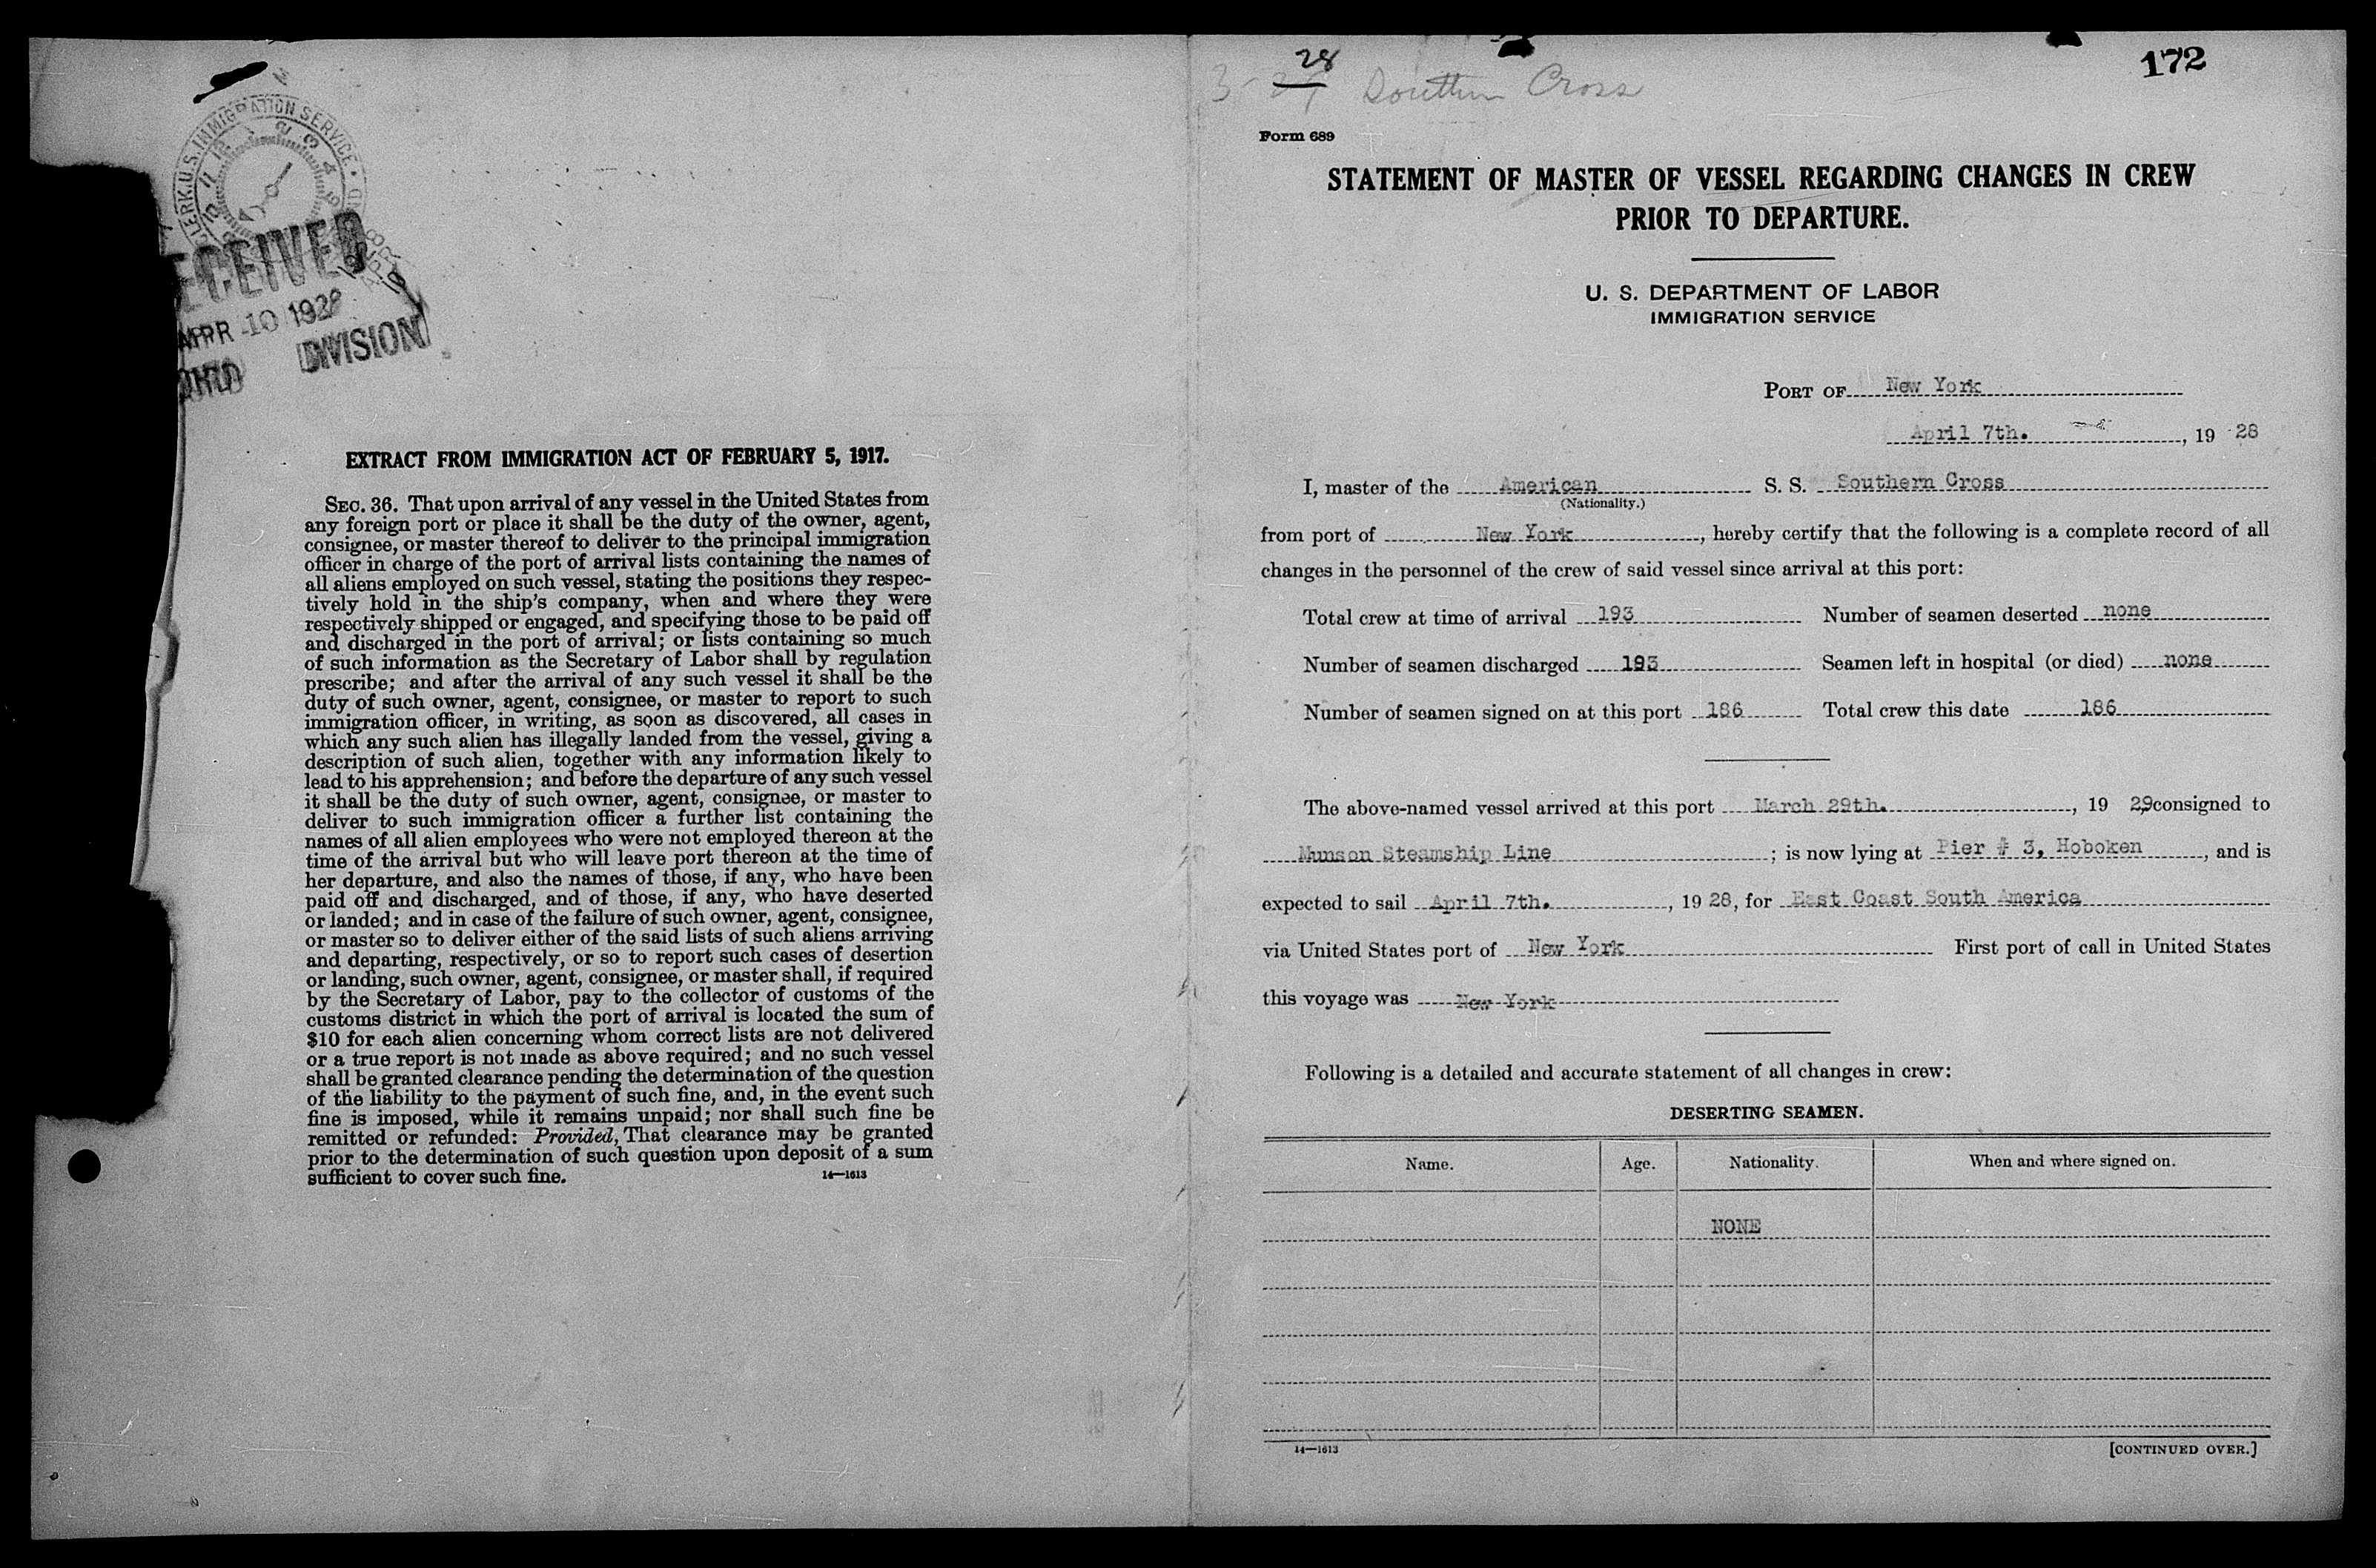 CLERK.U.S.IMMIGRATION SERVICE
12 2 3 4
11
10
ECEIVED
APR -10 1928
DIVISION
EXTRACT FROM IMMIGRATION ACT OF FEBRUARY 5, 1917.
SEC. 36. That upon arrival of any vessel in the United States from
any foreign port or place it shall be the duty of the owner, agent,
consignee, or master thereof to deliver to the principal immigration
officer in charge of the port of arrival lists containing the names of
all aliens employed on such vessel, stating the positions they respec-
tively hold in the ship's company, when and where they were
respectively shipped or engaged, and specifying those to be paid off
and discharged in the port of arrival; or lists containing so much
of such information as the Secretary of Labor shall by regulation
prescribe; and after the arrival of any such vessel it shall be the
duty of such owner, agent, consignee, or master to report to such
immigration officer, in writing, as soon as discovered, all cases in
which any such alien has illegally landed from the vessel, giving a
description of such alien, together with any information likely to
lead to his apprehension; and before the departure of any such vessel
it shall be the duty of such owner, agent, consignee, or master to
deliver to such immigration officer a further list containing the
names of all alien employees who were not employed thereon at the
time of the arrival but who will leave port thereon at the time of
her departure, and also the names of those, if any, who have been
paid off and discharged, and of those, if any, who have deserted
or landed; and in case of the failure of such owner, agent, consignee,
or master so to deliver either of the said lists of such aliens arriving
and departing, respectively, or so to report such cases of desertion
or landing, such owner, agent, consignee, or master shall, if required
by the Secretary of Labor, pay to the collector of customs of the
customs district in which the port of arrival is located the sum of
$10 for each alien concerning whom correct lists are not delivered
or a true report is not made as above required; and no such vessel
shall be granted clearance pending the determination of the question
of the liability to the payment of such fine, and, in the event such
fine is imposed, while it remains unpaid; nor shall such fine be
remitted or refunded: Provided, That clearance may be granted
prior to the determination of such question upon deposit of a sum
sufficient to cover such fine. 14—1613
28 172
3-29 Southern Cross
Form 689
STATEMENT OF MASTER OF VESSEL REGARDING CHANGES IN CREW
PRIOR TO DEPARTURE.
U. S. DEPARTMENT OF LABOR
IMMIGRATION SERVICE
PORT OF New York
April 7th. , 19 28
I, master of the American S. S. Southern Cross
(Nationality.)
from port of New York , hereby certify that the following is a complete record of all
changes in the personnel of the crew of said vessel since arrival at this port:
Total crew at time of arrival 193 Number of seamen deserted none
Number of seamen discharged 193 Seamen left in hospital (or died) none
Number of seamen signed on at this port 186 Total crew this date 186
The above-named vessel arrived at this port March 29th. , 19 29, consigned to
Munson Steamship Line ; is now lying at Pier # 3, Hoboken , and is
expected to sail April 7th. , 19 28, for East Coast South America
via United States port of New York First port of call in United States
this voyage was New York
Following is a detailed and accurate statement of all changes in crew:
DESERTING SEAMEN.
Name. Age. Nationality. When and where signed on.
NONE
14—1613 [CONTINUED OVER.]